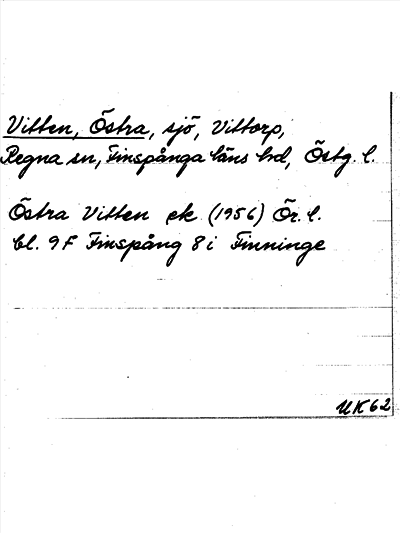 Vitten, Östra, sjö, Vittorp,
Regna sn, Finspånga läns hd, Östg. l.
Östra Vitten ek (1956) Ör. l.
bl. 9F Finspång 8 i Finninge
UK62